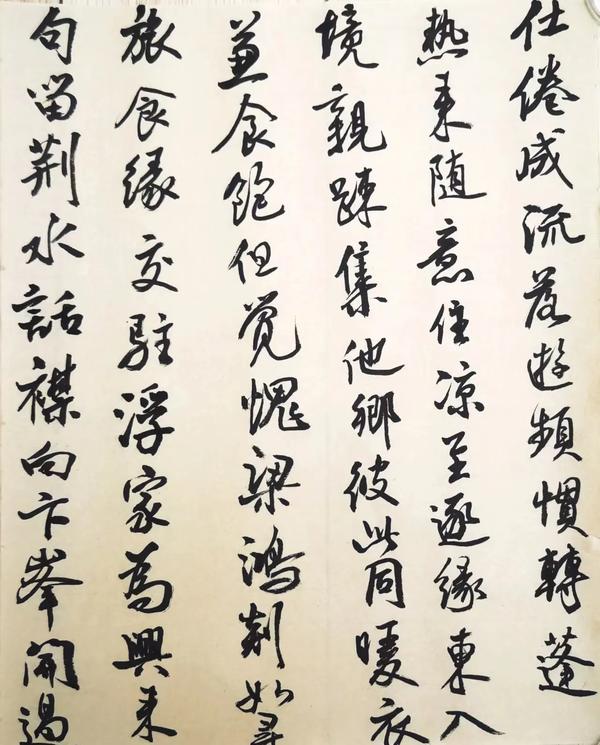 仕倦成流落遊頻慣轉蓬
熱来随意住凉至逐縁東入
境親踈集他鄉彼此同暖衣
兼食飽但覺愧梁鴻剡如尋
旅食緣交駐浮家為興来
句留荆水話襟向卞峯開過